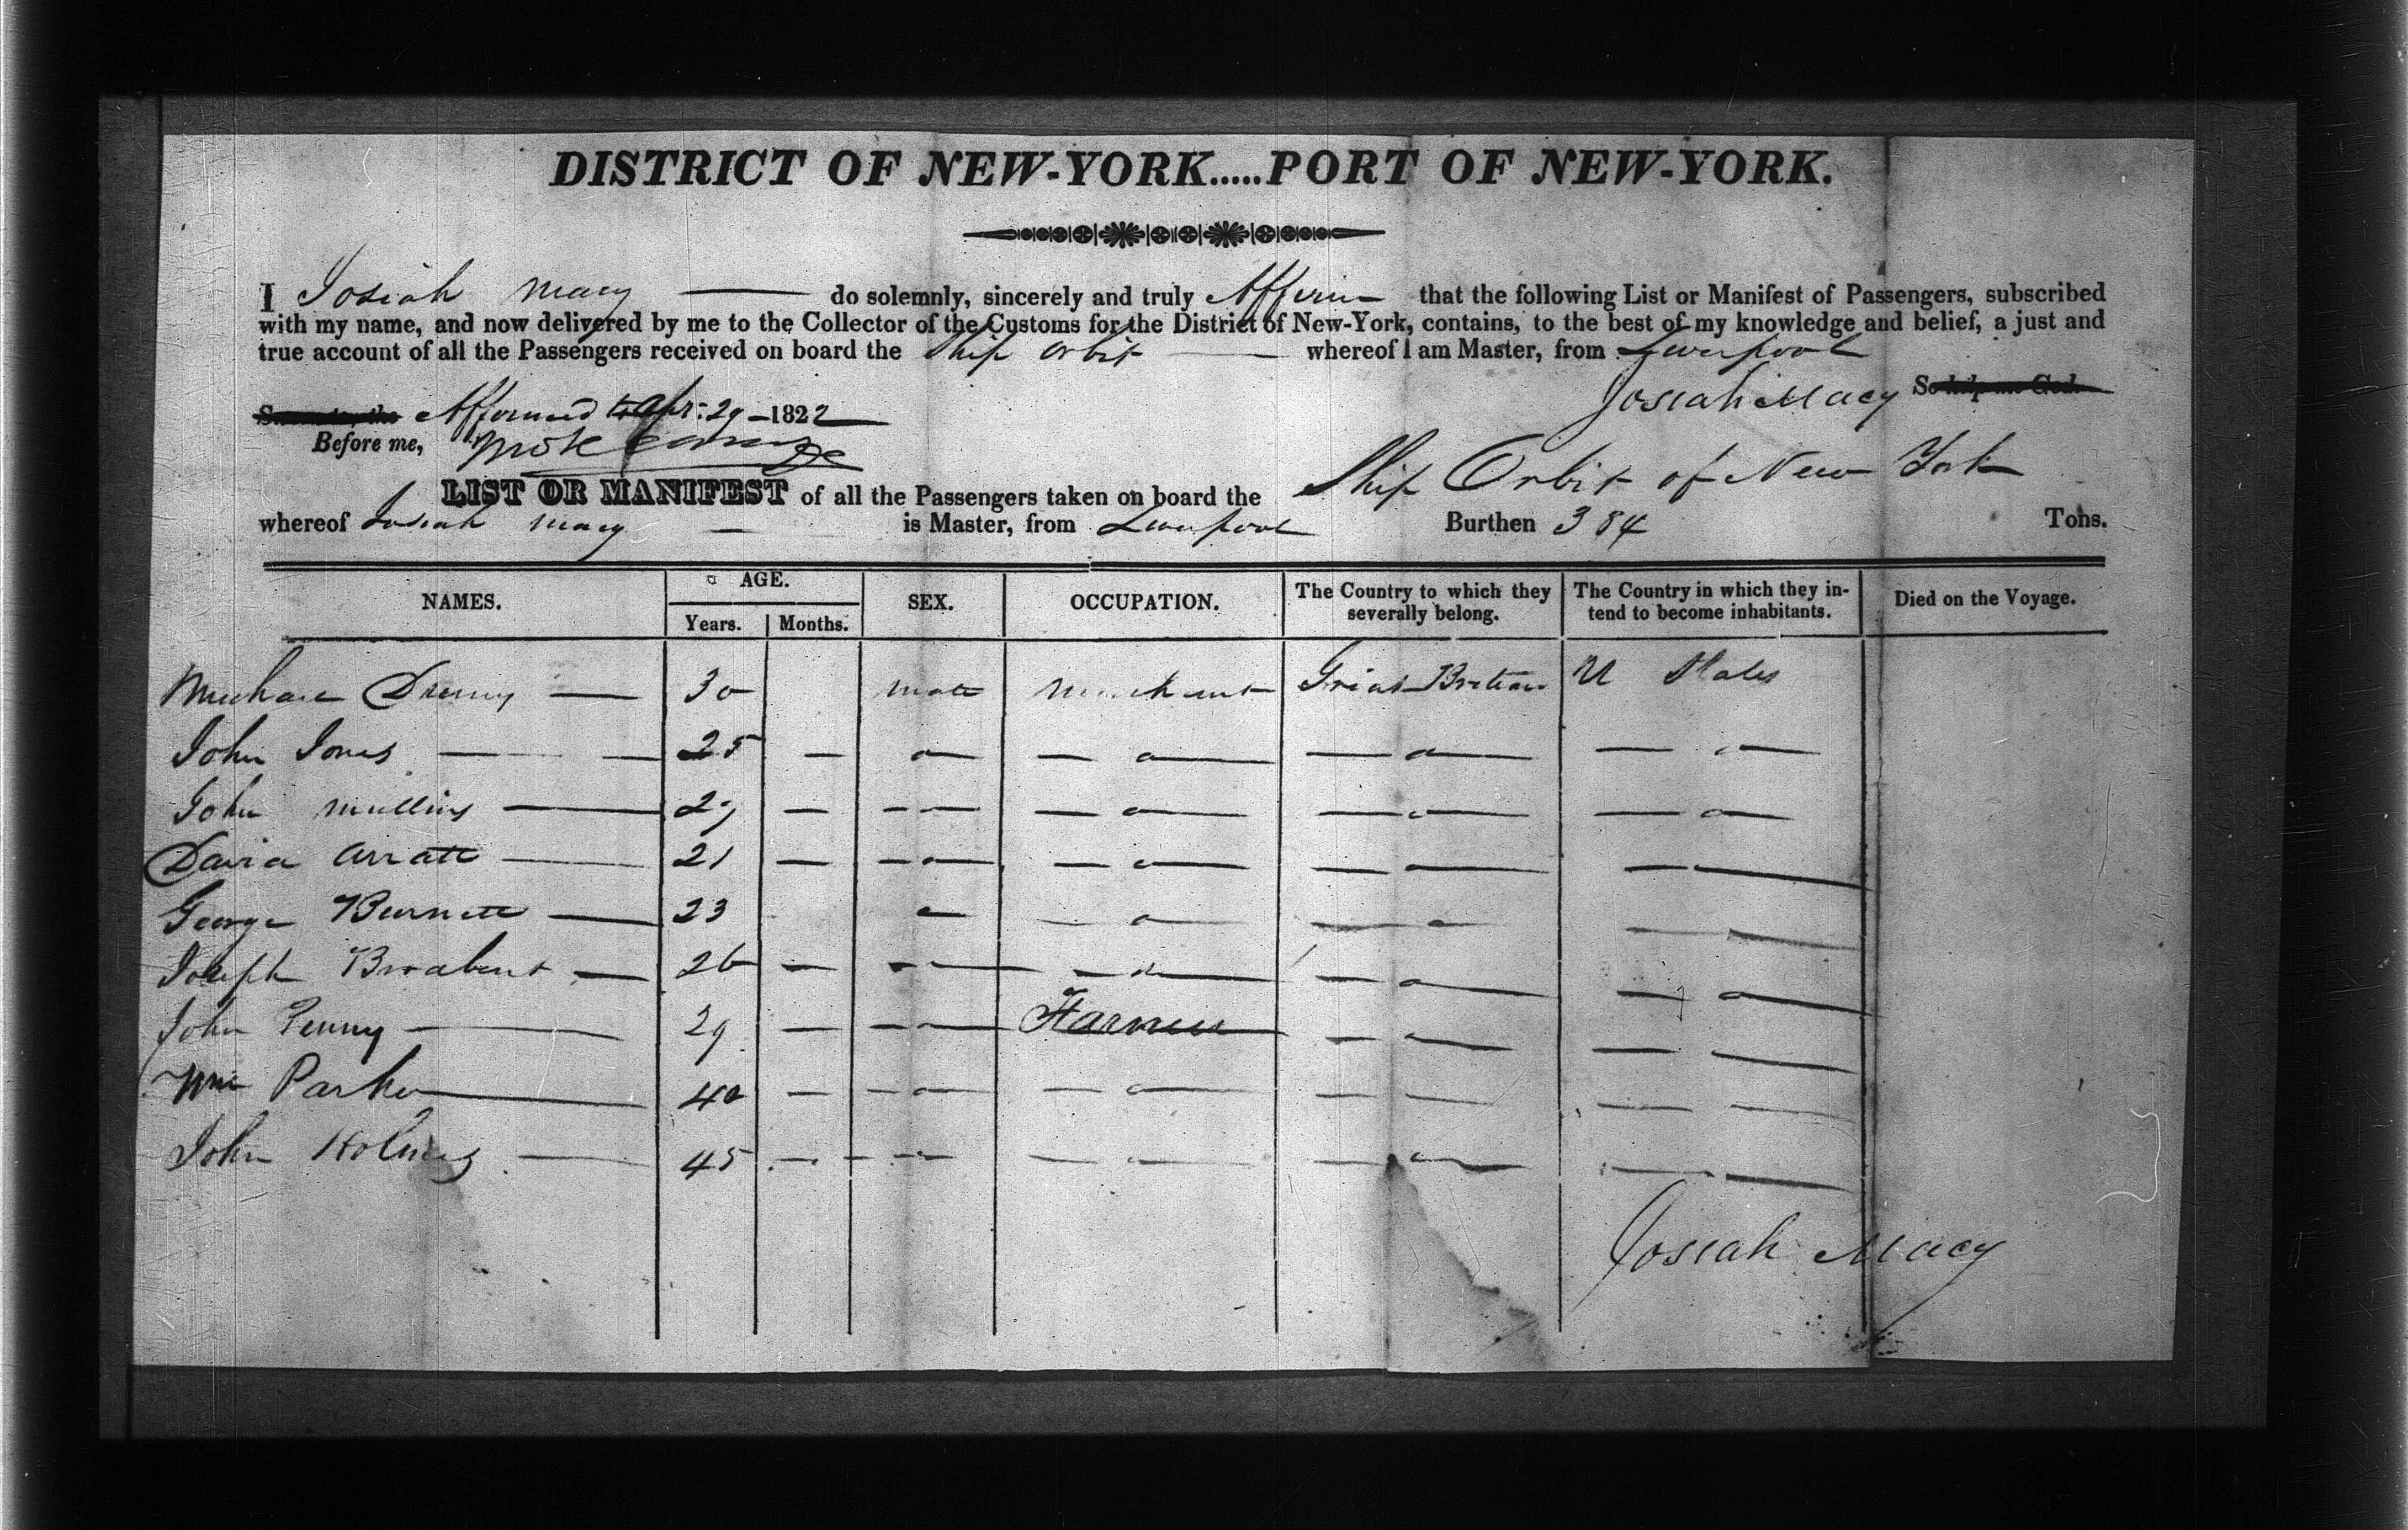 DISTRICT OF NEW-YORK.....PORT OF NEW-YORK.
I Josiah Macy do solemnly, sincerely and truly Affirm that the following List or Manifest of Passengers, subscribed
with my name, and now delivered by me to the Collector of the Customs for the District of New-York, contains, to the best of my knowledge and belief, a just and
true account of all the Passengers received on board the Ship Orbit whereof I am Master, from Liverpool
Josiah Macy So help me God.
Affirmed to Apr. 29 1822
Before me,
LIST OR MANIFEST of all the Passengers taken on board the Ship Orbit of New York
whereof Josiah Macy is Master, from Liverpool Burthen 384 Tons.
NAMES. AGE. Years. Months. SEX. OCCUPATION. The Country to which they severally belong. The Country in which they intend to become inhabitants. Died on the Voyage.
30 male merchant Great Britain U States
John Jones 25
John Mullins 29
David Arratt 21
George Burnett 23
Joseph Broabent 26
John Penny 29 Farmer
Wm Parker 40
John Holmes 45
Josiah Macy